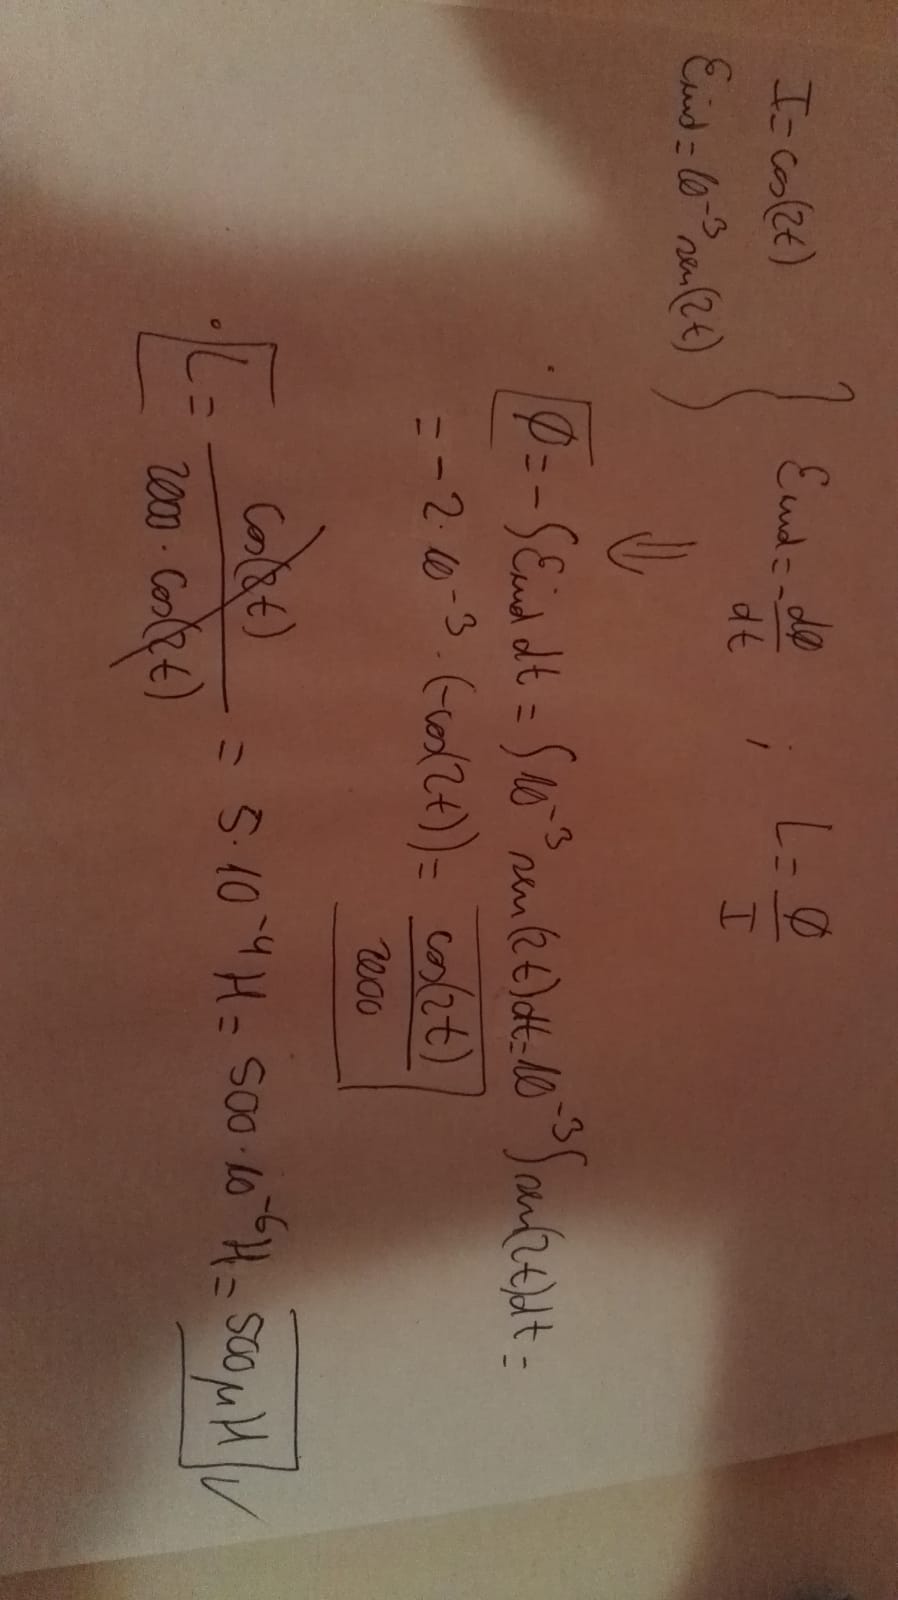 I = cos(2t) } Eind = -dø/dt ; L = ø/I
Eind = 10⁻³ sen(2t)
⇓
· ø = -∫Eind dt = ∫10⁻³ sen(2t)dt = 10⁻³∫sen(2t)dt =
= -2·10⁻³·(-cos(2t)) = cos(2t)/2000
· L = cos(2t)/2000·cos(2t) = 5·10⁻⁴H = 500·10⁻⁶H = 500μH ✓